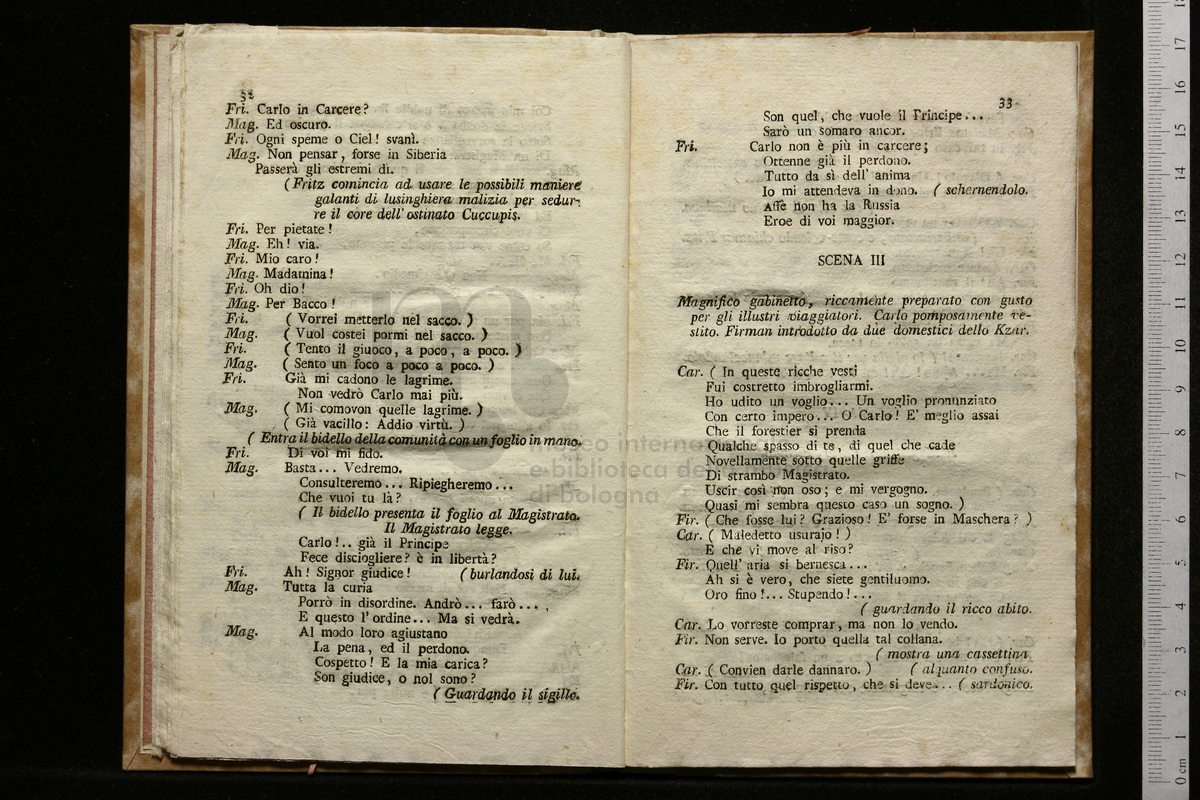 32
Fri. Carlo in Carcere?
Mag. Ed oscuro.
Fri. Ogni speme o Ciel! svanì.
Mag. Non pensar, forse in Siberia
Passerà gli estremi dì.
(Fritz comincia ad usare le possibili maniere
galanti di lusinghiera malizia per sedur-
re il core dell' ostinato Cuccupis.
Fri. Per pietate!
Mag. Eh! via.
Fri. Mio caro!
Mag. Madamina!
Fri. Oh dio!
Mag. Per Bacco!
Fri. (Vorrei metterlo nel sacco.)
Mag. (Vuol costei pormi nel sacco.)
Fri. (Tento il giuoco, a poco, a poco.)
Mag. (Sento un foco a poco a poco.)
Fri. Già mi cadono le lagrime.
Non vedrò Carlo mai più.
Mag. (Mi comovon quelle lagrime.)
(Già vacillo: Addio virtù.)
(Entra il bidello della comunità con un foglio in mano.
Fri. Di voi mi fido.
Mag. Basta... Vedremo.
Consulteremo... Ripiegheremo...
Che vuoi tu là?
(Il bidello presenta il foglio al Magistrato.
Il Magistrato legge.
Carlo!.. già il Principe
Fece disciogliere? è in libertà?
Fri. Ah! Signor giudice! (burlandosi di lui.
Mag. Tutta la curia
Porrò in disordine. Andrò... farò...
E questo l' ordine... Ma si vedrà.
Mag. Al modo loro agiustano
La pena, ed il perdono.
Cospetto! E la mia carica?
Son giudice, o nol sono?
(Guardando il sigillo.
33
Son quel, che vuole il Principe...
Sarò un somaro ancor.
Fri. Carlo non è più in carcere;
Ottenne già il perdono.
Tutto da sì dell' anima
Io mi attendeva in dono. (schernendolo.
Affè non ha la Russia
Eroe di voi maggior.
SCENA III
Magnifico gabinetto, riccamente preparato con gusto
per gli illustri viaggiatori. Carlo pomposamente ve-
stito. Firman introdotto da due domestici dello Kzar.
Car. (In queste ricche vesti
Fui costretto imbrogliarmi.
Ho udito un voglio... Un voglio pronunziato
Con certo impero... O Carlo! E' meglio assai
Che il forestier si prenda
Qualche spasso di te, di quel che cade
Novellamente sotto quelle griffe
Di strambo Magistrato.
Uscir così non oso; e mi vergogno.
Quasi mi sembra questo caso un sogno.)
Fir. (Che fosse lui? Grazioso! E' forse in Maschera?)
Car. (Maledetto usurajo!)
E che vi move al riso?
Fir. Quell' aria sì bernesca...
Ah si è vero, che siete gentiluomo.
Oro fino!... Stupendo!...
(guardando il ricco abito.
Car. Lo vorreste comprar, ma non lo vendo.
Fir. Non serve. Io porto quella tal collana.
(mostra una cassettina.
Car. (Convien darle dannaro.) (alquanto confuso.
Fir. Con tutto quel rispetto, che si deve... (sardonico.
museo internazionale
e biblioteca de
di bologna